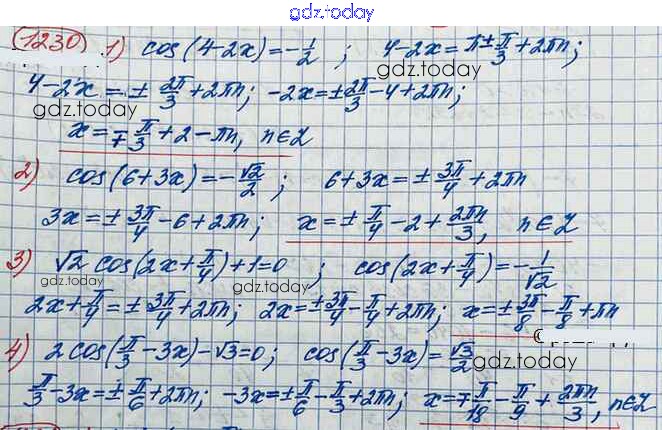 gdz.today
1230 1) cos(4-2x)=-1/2 ; 4-2x=π±π/3+2πn;
gdz.today
4-2x=±2π/3+2πn; -2x=±2π/3-4+2πn;
gdz.today
x=∓π/3+2-πn, n∈Z
2) cos(6+3x)=-√2/2 ; 6+3x=±3π/4+2πn
3x=±3π/4-6+2πn; x=±π/4-2+2πn/3, n∈Z
3) √2 cos(2x+π/4)+1=0 ; cos(2x+π/4)=-1/√2
gdz.today gdz.today
2x+π/4=±3π/4+2πn; 2x=±3π/4-π/4+2πn; x=±3π/8-π/8+πn
4) 2cos(π/3-3x)-√3=0; cos(π/3-3x)=√3/2
gdz.today
π/3-3x=±π/6+2πn; -3x=±π/6-π/3+2πn; x=∓π/18-π/9+2πn/3, n∈Z